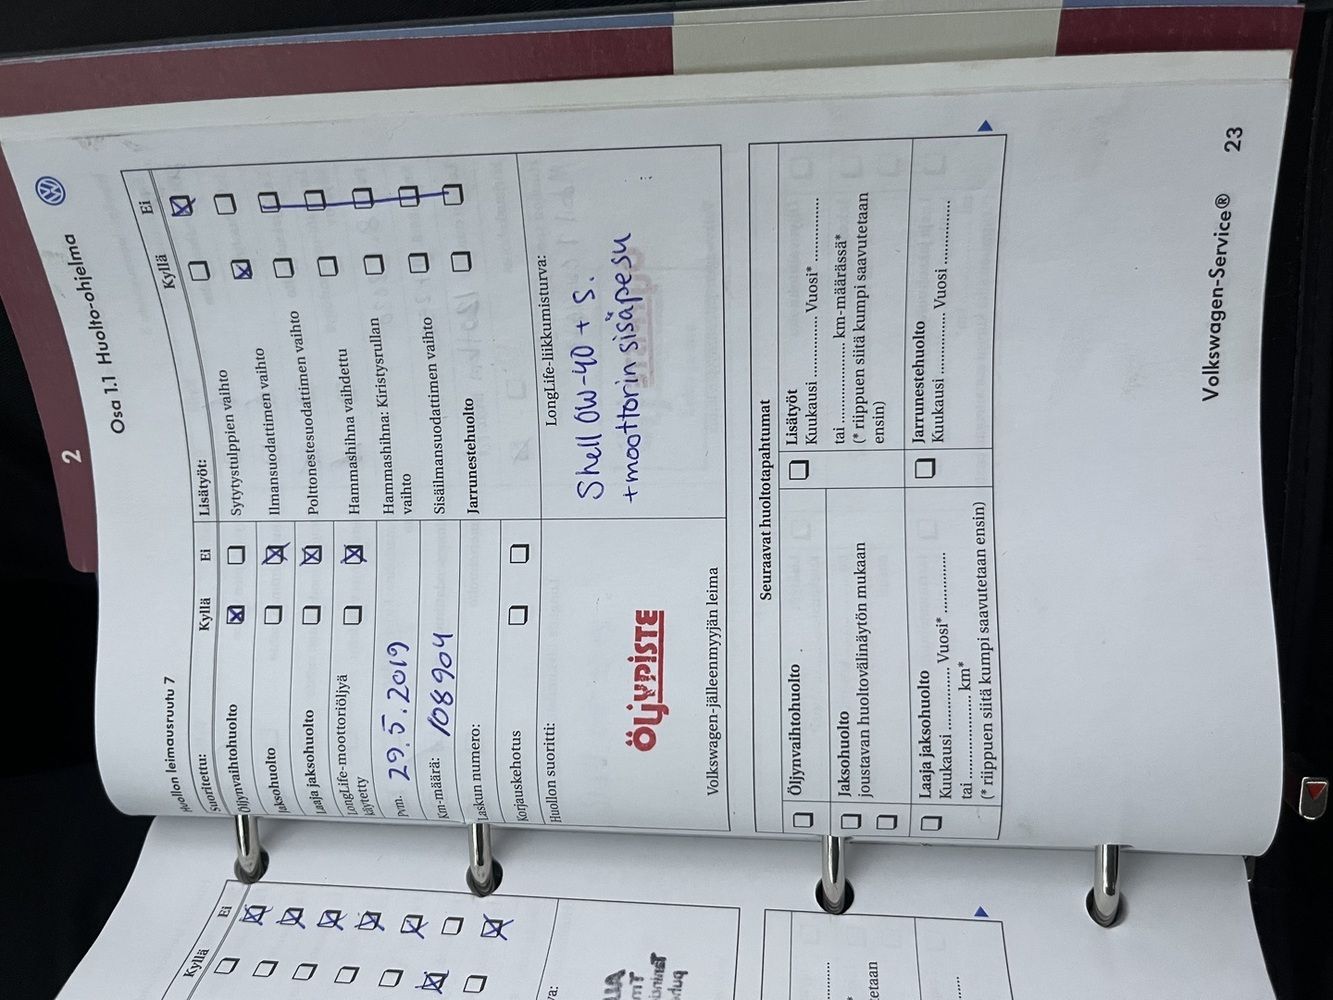 2
Osa 1.1 Huolto-ohjelma
Huollon leimausruutu 7
Suoritettu: Kyllä Ei
Öljynvaihtohuolto
Jaksohuolto
Laaja jaksohuolto
LongLife-moottoriöljyä
käytetty
Pvm. 29.5.2019
Km-määrä: 108904
Laskun numero:
Korjauskehotus
Huollon suoritti:
ÖLJYPISTE
Volkswagen-jälleenmyyjän leima
Lisätyöt: Kyllä Ei
Sytytystulppien vaihto
Ilmansuodattimen vaihto
Polttonestesuodattimen vaihto
Hammashihna vaihdettu
Hammashihna: Kiristysrullan
vaihto
Sisäilmansuodattimen vaihto
Jarrunestehuolto
LongLife-liikkumisturva:
Shell 0W-40 + S.
+moottorin sisäpesu
Seuraavat huoltotapahtumat
Öljynvaihtohuolto
Jaksohuolto
joustavan huoltovälinäytön mukaan
Laaja jaksohuolto
Kuukausi ............. Vuosi* .............
tai .................. km*
(* riippuen siitä kumpi saavutetaan ensin)
Lisätyöt
Kuukausi ............. Vuosi* .............
tai .................. km-määrässä*
(* riippuen siitä kumpi saavutetaan
ensin)
Jarrunestehuolto
Kuukausi ............. Vuosi .............
Volkswagen-Service® 23
Kyllä Ei
etaan